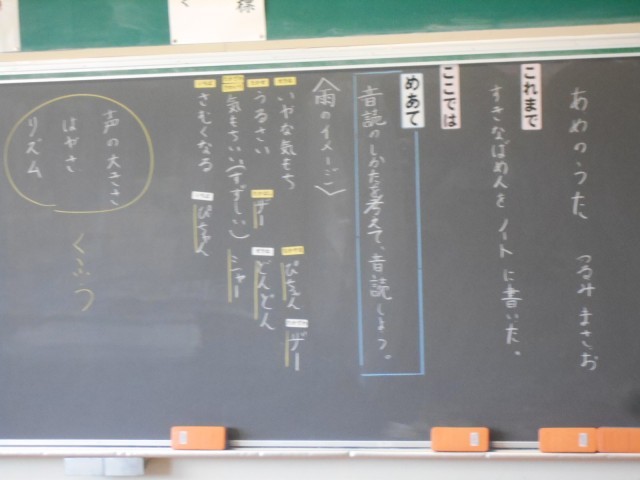 様
あめのうた　つるみまさお
これまで
すきなばめんをノートに書いた。
ここでは
めあて
音読のしかたを考えて、音読しよう。
〈雨のイメージ〉
いやな気もち　ぴちゃん　ザー
うるさい　ザー　どんどん
気もちいい(すずしい)　シャー
さむくなる　ぴちゃん
声の大きさ
はやさ
リズム
くふう